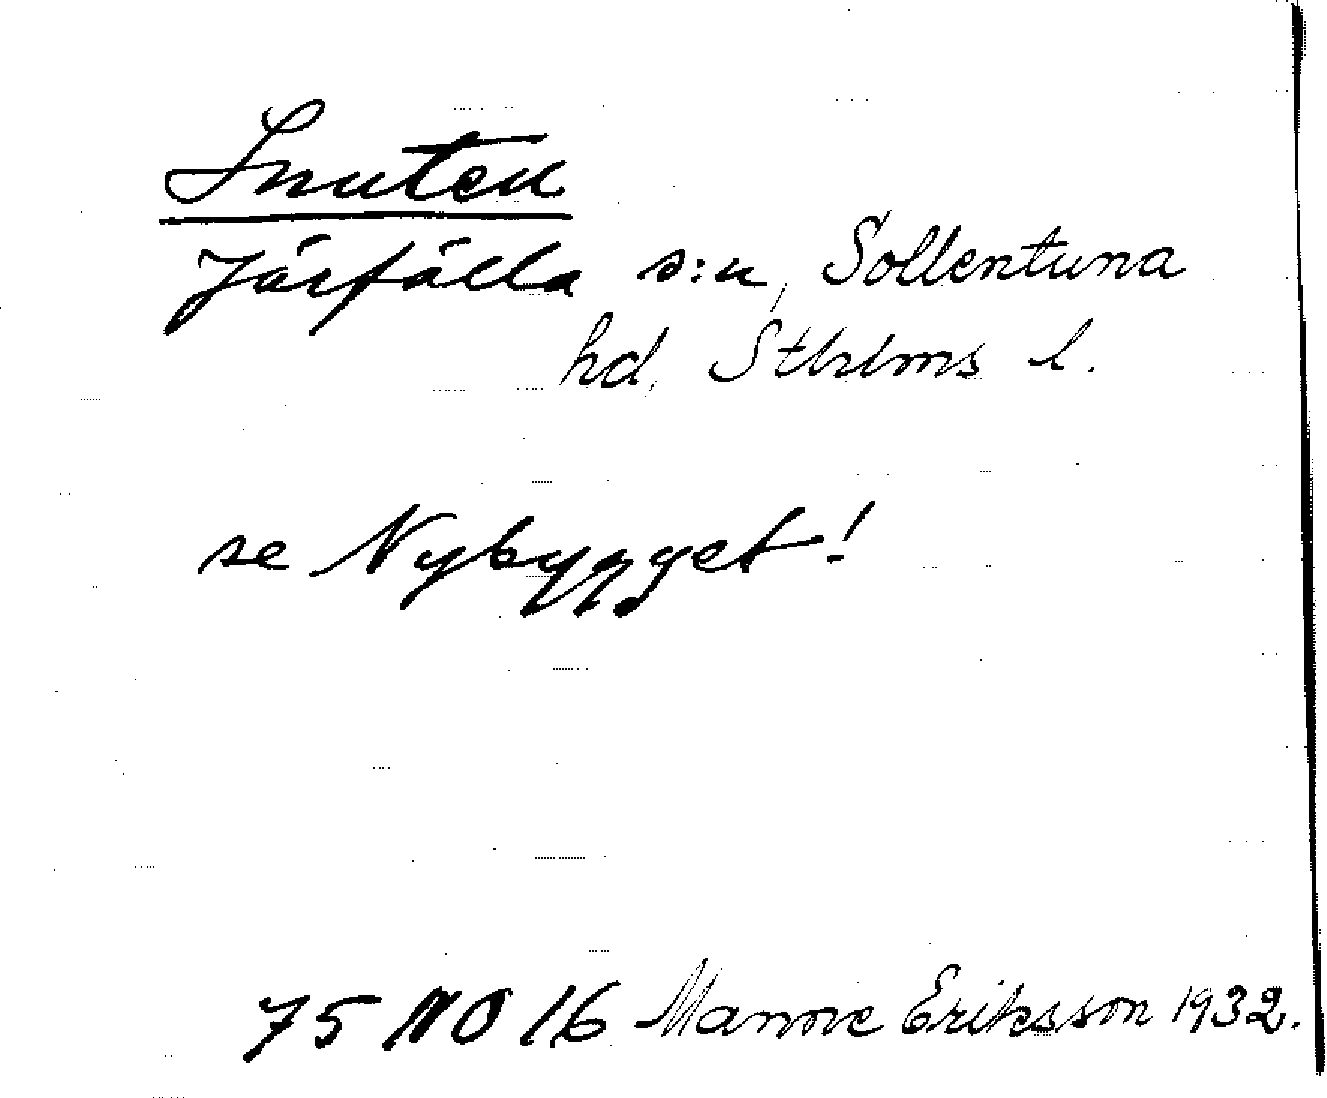 Snuten
Järfälla s:n, Sollentuna
hd, Sthlms l.
se Nybygget!
75 NO 16 Manne Eriksson 1932.